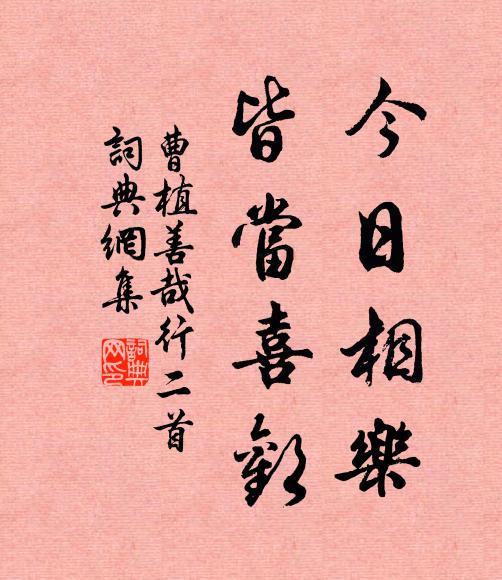 今日相樂
皆當喜歡
曹植善哉行二首
詞典網集
詞典網印